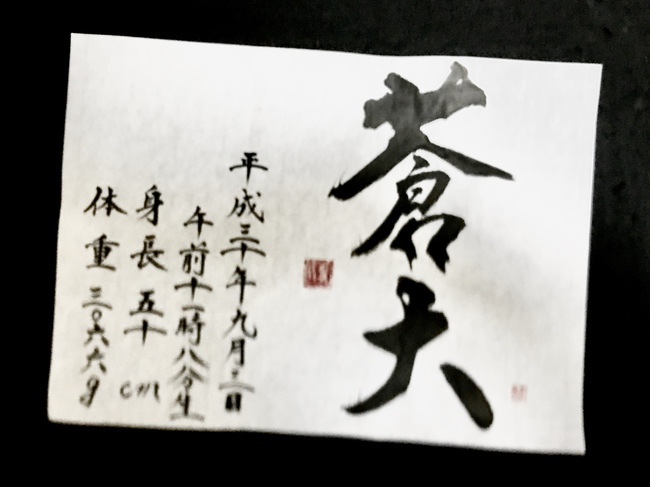 蒼大
平成三十年九月二日
午前十一時八分生
身長五十cm
体重三〇六六g